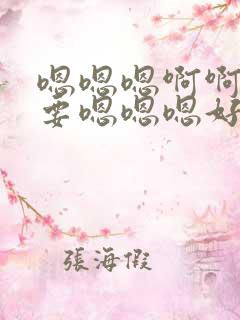 嗯嗯嗯啊啊
要嗯嗯嗯好
張海假